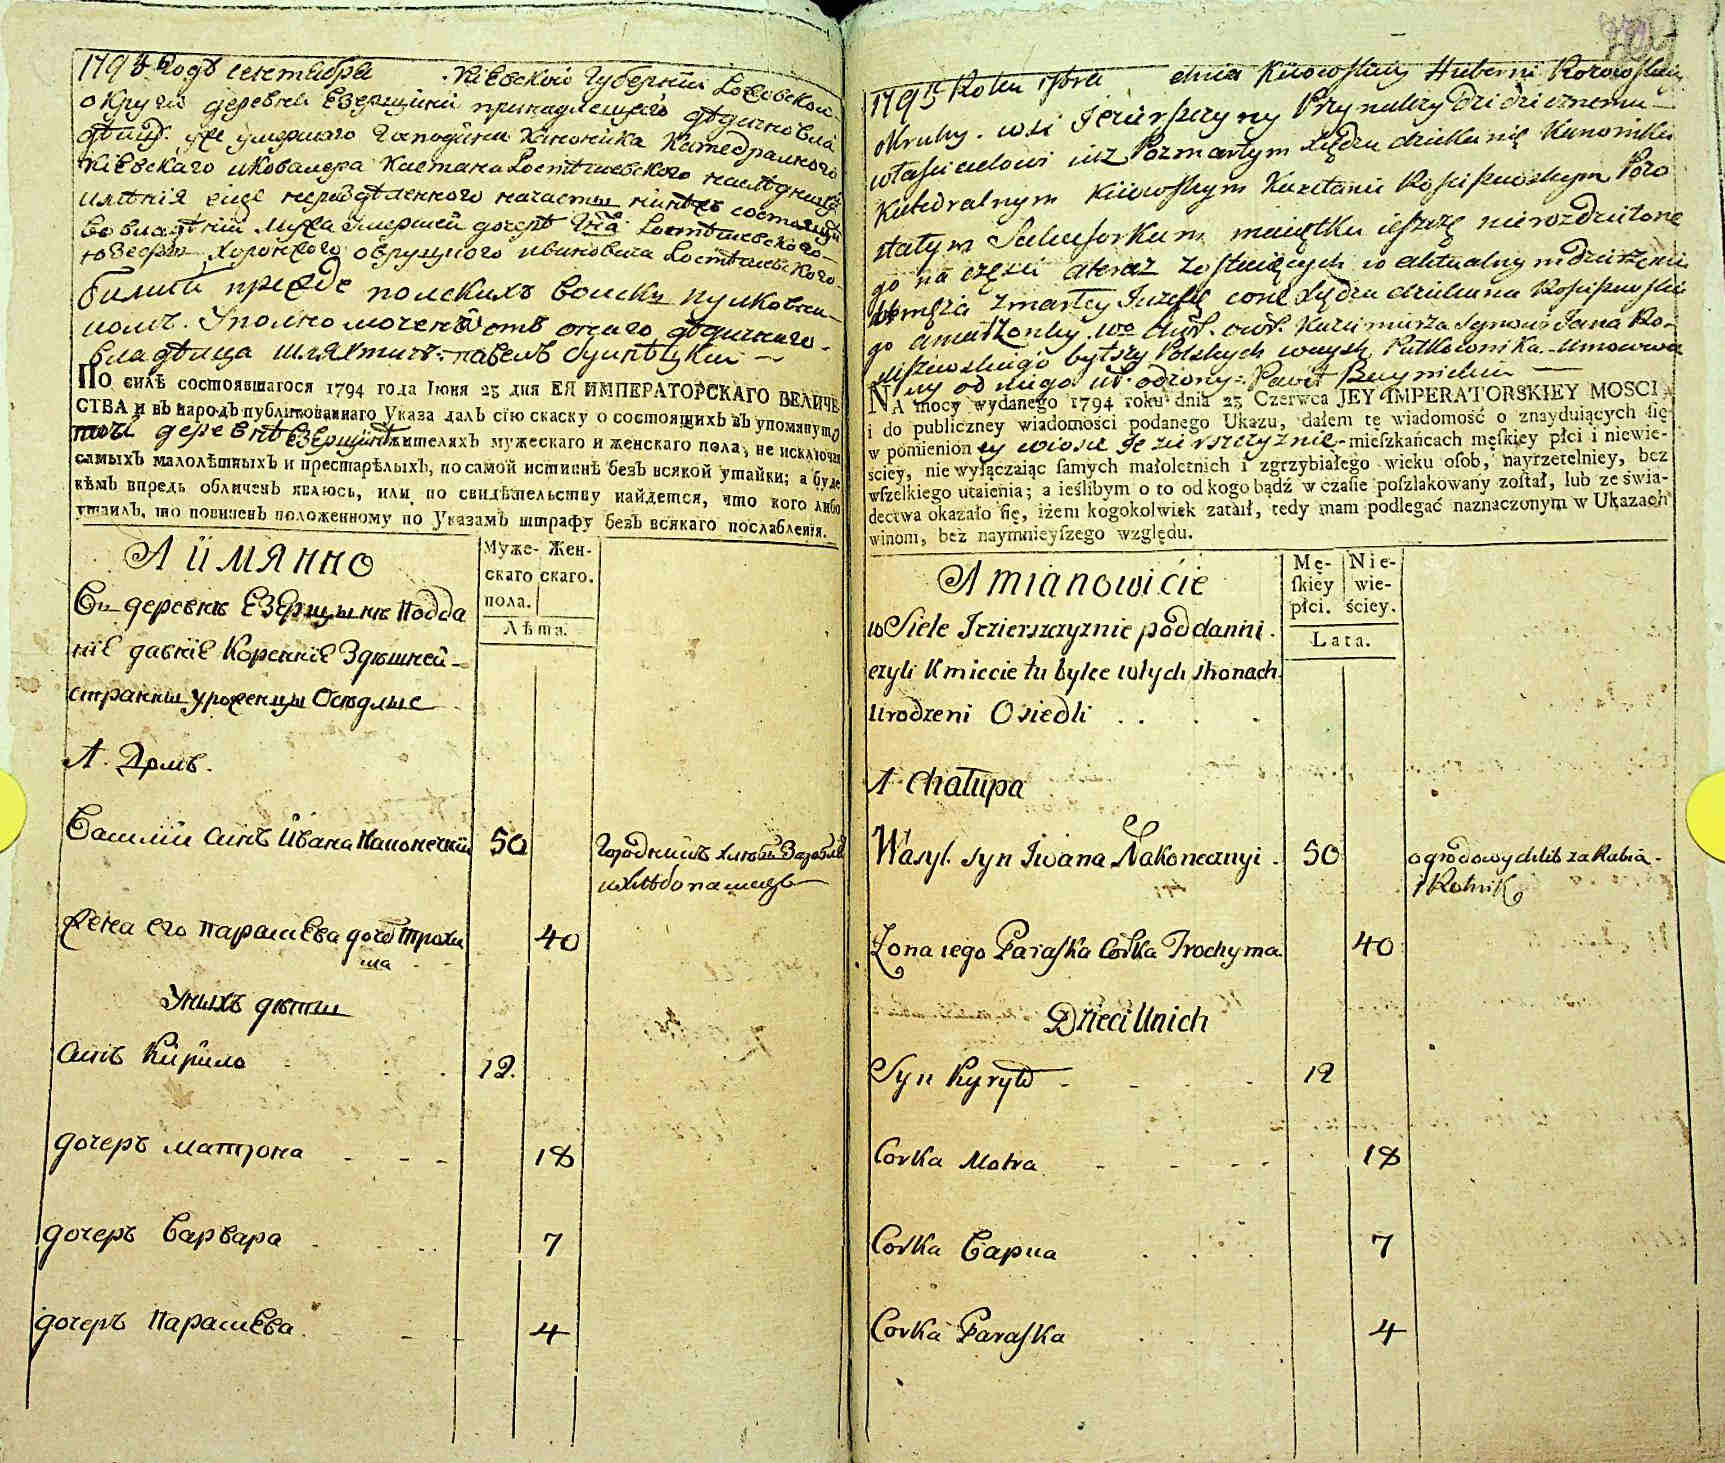 1795 Годъ сентября Кіевской Губерніи
округи деревни Езерщини принадлещаго дѣдичной
уже умершаго Господина Каноника Катедралного
Кіевскаго Каетана Ростѣшевского наслѣдник
имѣнія еще нераздѣленного начасти нинѣ состоящ
во владѣніи мужа умершей дочерѣ Ростѣшевского
Юзефи, хоронжого овруцкого Ростѣшевского
бившій прежде полскихъ войскъ пулковни
комъ. Уполномоченъ отъ онаго дѣдичнаго
владѣлца шляхтичъ павелъ
ПО силѣ состоявшагося 1794 года Іюня 23 дня ЕЯ ИМПЕРАТОРСКАГО ВЕЛИЧЕ
СТВА и въ народъ публикованнаго Указа далъ сію скаску о состоящихъ въ упомянуто
той деревнѣ Езерщинѣ жителяхъ мужескаго и женскаго пола, не исключая
самыхъ малолѣтныхъ и престарѣлыхъ, по самой истиннѣ безъ всякой утайки; а буде
кѣмъ впредь обличенъ явлюсь, или по свидѣтельству найдется, что кого либо
утаилъ, то повиненъ положенному по Указамъ штрафу безъ всякаго послабленія.
А ИМЯННО
Муже- Жен-
скаго скаго.
пола.
Лѣта.
Въ деревнѣ Езерщынѣ подда
ніе давніе Коренніе Здѣшней
страны уроженцы Осѣдлые
А. Домъ.
Василий синъ Ивана Наконечний 50
хлѣбопашецъ
Жена его параскева дочь Трохи 40
ма
Унихъ дѣти
синъ Кирило 12.
дочеръ матрона - - - 18
дочеръ Варвара 7
дочеръ Параскева 4
1795 Roku dnia Kiiowskiey Huberni
okruhy. wsi Jezierszczyzny Przynależy Dziedzicznemu
właścicielowi iuż Pozmarłym Xiędzu dziekanie Kanoniku
Katedralnym Kiiowskym Kaietanie Rościszewskym Pozo
stałym Sukcessorkom maiątku ieszcze nierozdzielone
go na części ateraz zostaiących w aktualnym dzierżeniu
męża zmarłey Józefy Xiędza dziekana Rościszewskie
go amałżonki Kazimierza Synowi Jana Ro-
ściszewskiego byłszy Polskych woysk Pułkownika
od niego Paweł
NA mocy wydanego 1794 roku dnia 23 Czerwca JEY IMPERATORSKIEY MOSCI
i do publiczney wiadomości podanego Ukazu, dałem tę wiadomość o znayduiących się
w pomienioney wiosce Jezierszczyznie mieszkańcach męskiey płci i niewie-
ściey, nie wyłączaiąc samych małoletnich i zgrzybiałego wieku osob, nayrzetelniey, bez
wszelkiego utaienia; a ieślibym o to od kogo bądź w czasie poszlakowany został, lub ze świa-
dectwa okazało się, iżem kogokolwiek zataił, tedy mam podlegać naznaczonym w Ukazach
winom, bez naymnieyszego względu.
Amianowićie
Mę- Nie-
skiey wie-
płci. ściey.
Lata.
w Siele Jezierszczyznie poddanni.
czyli Kmiecie tu bylce wtych stronach
Urodzeni Osiedli . . .
A Chałupa
Wasyl. syn Iwana Nakonecznyi . 50 ogrodowy chlib zarabia.
i Rolnik
Żona iego Paraska Corka Trochyma 40
Dzieci Unich
Syn Kyryło - - - - 12
Corka Motra - - - - 18
Corka Варка . . . 7
Corka Paraska . . . 4